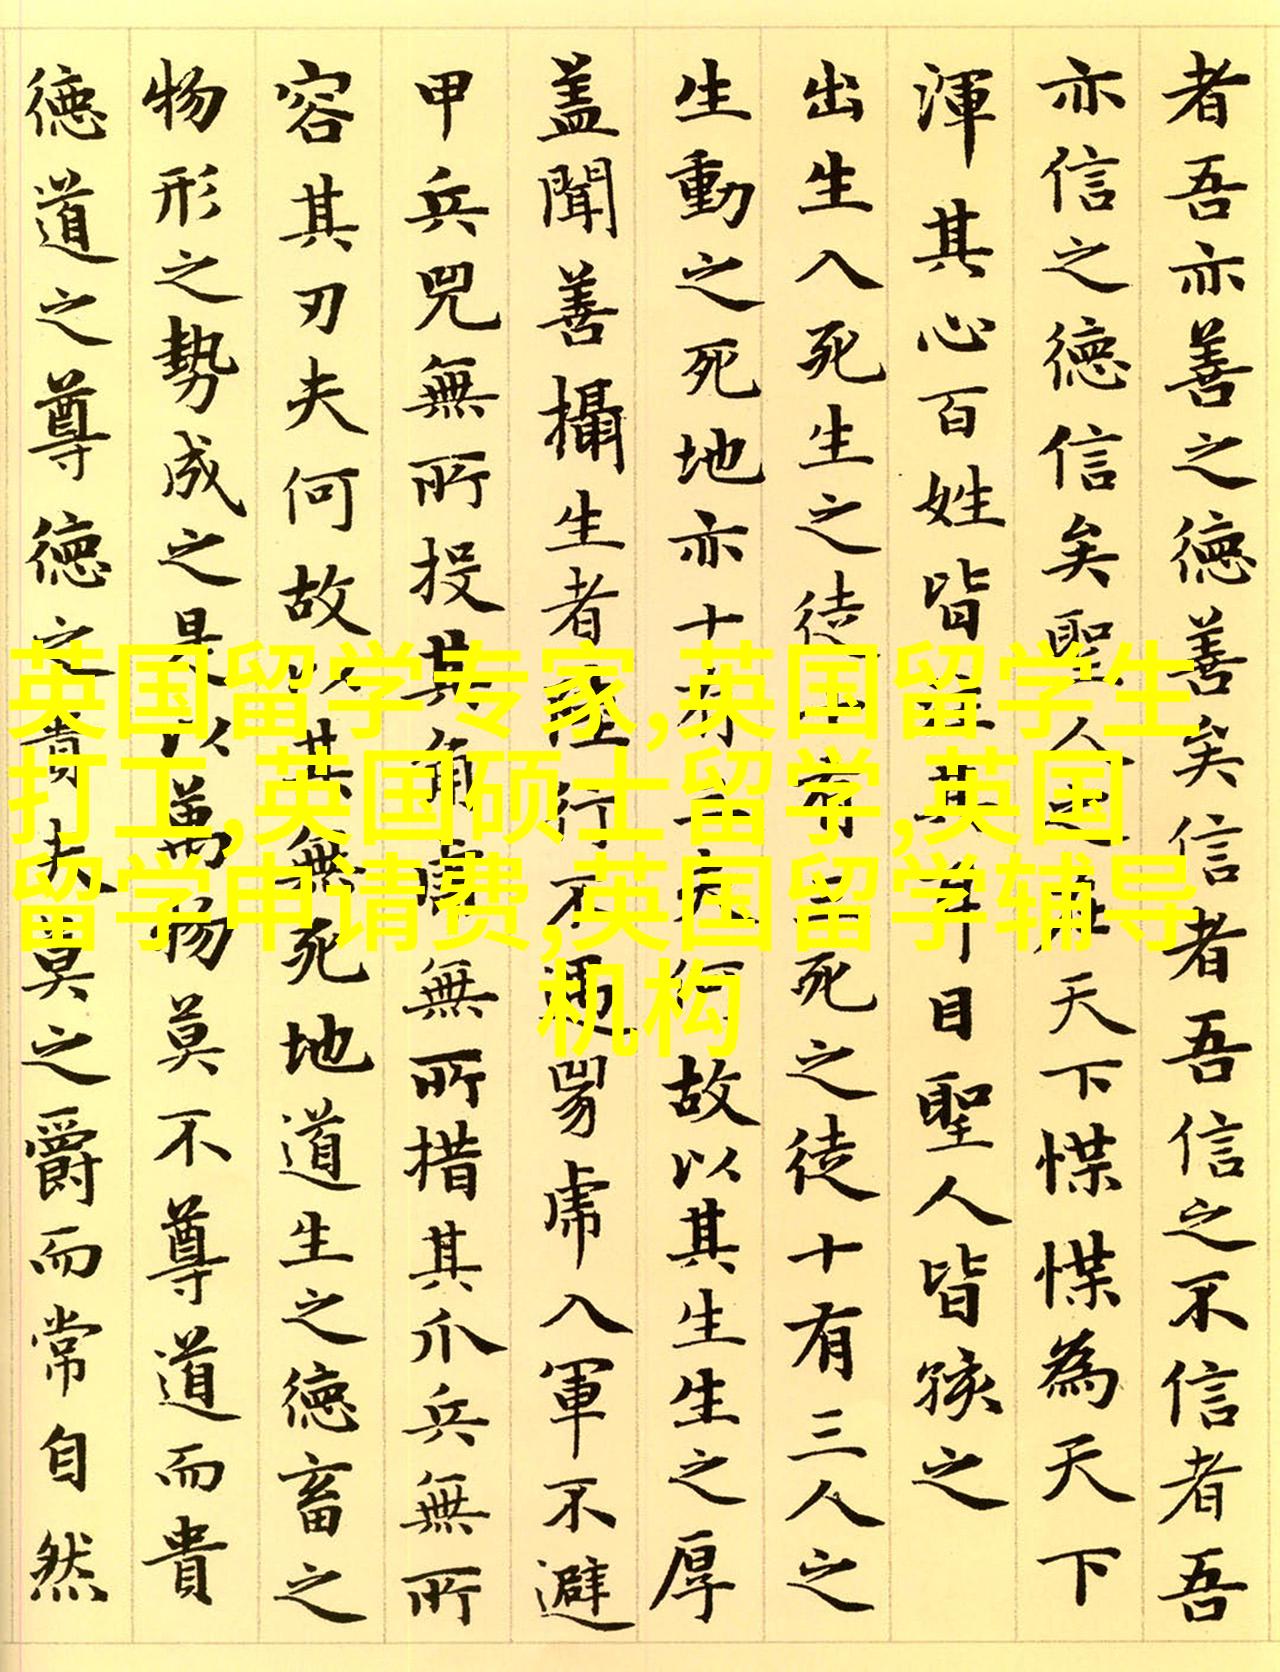 者吾亦善之德善矣信者吾信之不信者吾
亦信之德信矣聖人之在天下惵惵為天下
渾其心百姓皆注其耳目聖人皆孩之
出生入死生之徒十有三死之徒十有三人之
生動之死地亦十有三夫何故以其生生之厚
蓋聞善攝生者陸行不遇兕虎入軍不避
甲兵兕無所投其角虎無所措其爪兵無所
容其刃夫何故以其無死地道生之德畜之
物形之勢成之是以萬物莫不尊道而貴
德道之尊德之貴夫莫之爵而常自然
英国留学专家,英国留学生
打工,英国硕士留学,英国
留学申请费,英国留学辅导
机构